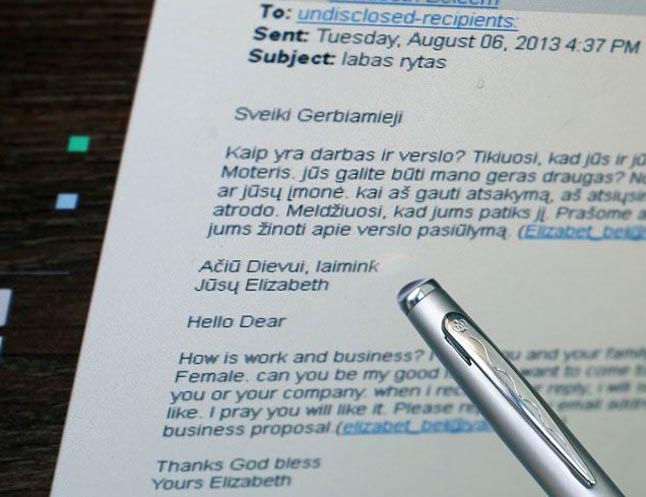 To: undisclosed-recipients:
Sent: Tuesday, August 06, 2013 4:37 PM
Subject: labas rytas
Sveiki Gerbiamieji
Kaip yra darbas ir verslo? Tikiuosi, kad jūs ir
Moteris. jūs galite būti mano geras draugas?
ar jūsų įmonė. kai aš gauti atsakymą, aš
atrodo. Meldžiuosi, kad jums patiks jį. Prašome
jums žinoti apie verslo pasiūlymą. (
Ačiū Dievui, laimink
Jūsų Elizabeth
Hello Dear
How is work and business? and your
Female. can you be my good to come
you or your company. when i reply, I will
like. I pray you will like it. Please email
business proposal.(
Thanks God bless
Yours Elizabeth